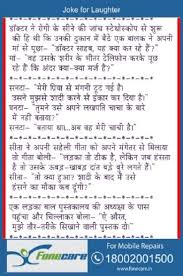 Joke for Laughter
डॉक्टर ने रोगी के सीने की जांच स्टेथोस्कोप से शुरू
की ही थी कि उनकी दुकान में बैठे एक बालक ने अपनी
मां से पूछा- "डॉक्टर साहब, यह क्या कर रहे हैं?"
मां- "वह उसके शरीर के भीतर टेलिफोन करके पूछ
रहे हैं कि अंदर क्या-क्या मर्ज है?"
सनता- "मेरी प्रिया से मंगनी टूट गई है।
उसने मुझसे शादी करने से इंकार कर दिया है।
बनता- "तुमने उसे अपने लखपति चाचा के बारे
में नहीं बताया?
सनता- "बताया था...अब वह मेरी चाची है।
सीता ने अपनी सहेली गीता को अपने मंगेतर से मिलाया
तो गीता बोली- "लड़का तो ठीक है, लेकिन जब हंसता
है तो उसके ऊबड़-खाबड़ दांत बड़े बुरे लगते हैं।
सीता- "तो क्या हुआ? शादी के बाद मैं उसे
हंसने का मौका कब दूंगी?"
एक लड़का बाल पुस्तकालय की अध्यक्ष के पास
पहुंचा और चिल्लाकर बोला- "ऐ औरत,
मुझे तौर-तरीके सिखाने वाली पुस्तक दो।
Fonecare
www.fonecare.in
For Mobile Repairs
18002001500